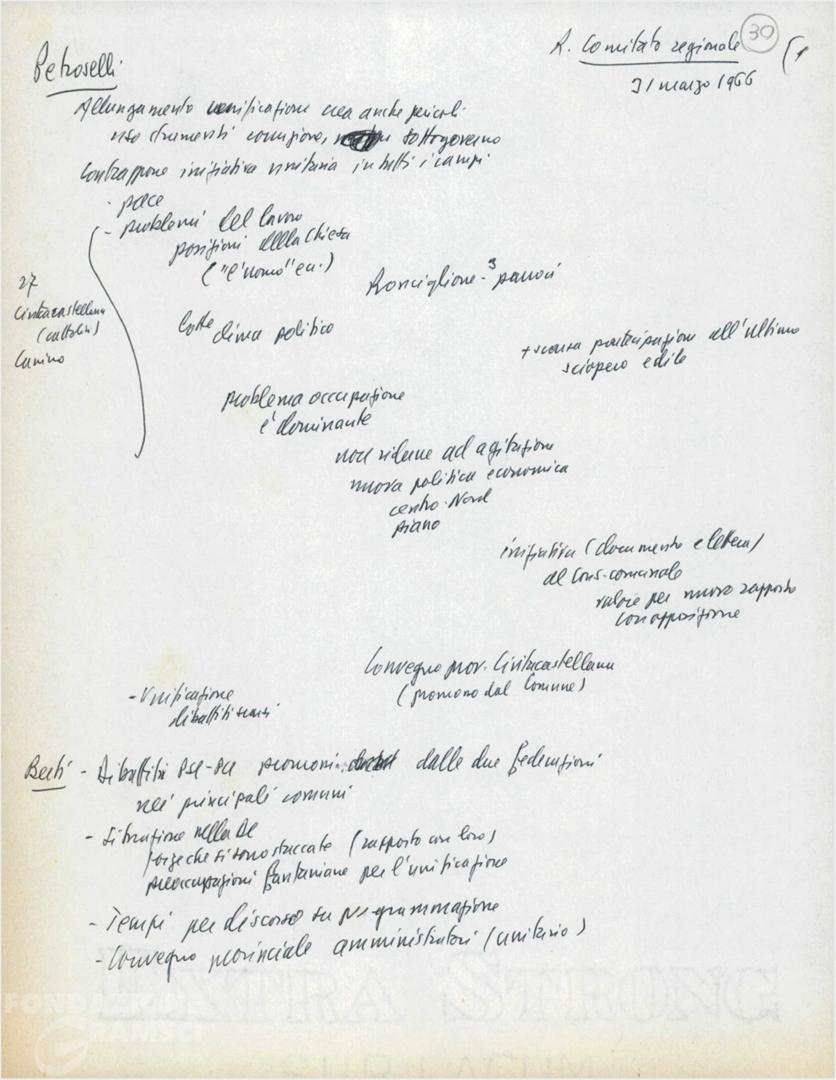 30
R. Comitato regionale (1
31 marzo 1966
Petroselli
Allungamento unificazione crea anche pericoli
uso strumenti corruzione, sottogoverno
Contrappone iniziativa unitaria in tutti i campi
- pace
- problemi del lavoro
posizioni della Chiesa
("è nomo" ecc.)
Ronciglione - 3 parroci
27
Civitacastellana
(cattolici)
Canino
lotte clima politico
+ scarsa partecipazione all'ultimo
sciopero edile
problema occupazione
è dominante
non ridurre ad agitazione
nuova politica economica
centro-Nord
piano
iniziativa (documento e lettera)
al Cons. comunale
valore per nuovo rapporto
con opposizione
Convegno prov. Civitacastellana
(promosso dal Comune)
- Unificazione
dibattiti
Berti - Dibattiti PSI-PCI promossi dalle due federazioni
nei principali comuni
- Situazione nella DC
forze che si sono staccate (rapporto con loro)
preoccupazioni fanfaniane per l'unificazione
- Tempi per discorso su programmazione
- Convegno provinciale amministratori (unitario)
FONDAZIONE
GRAMSCI
EXTRA STRONG